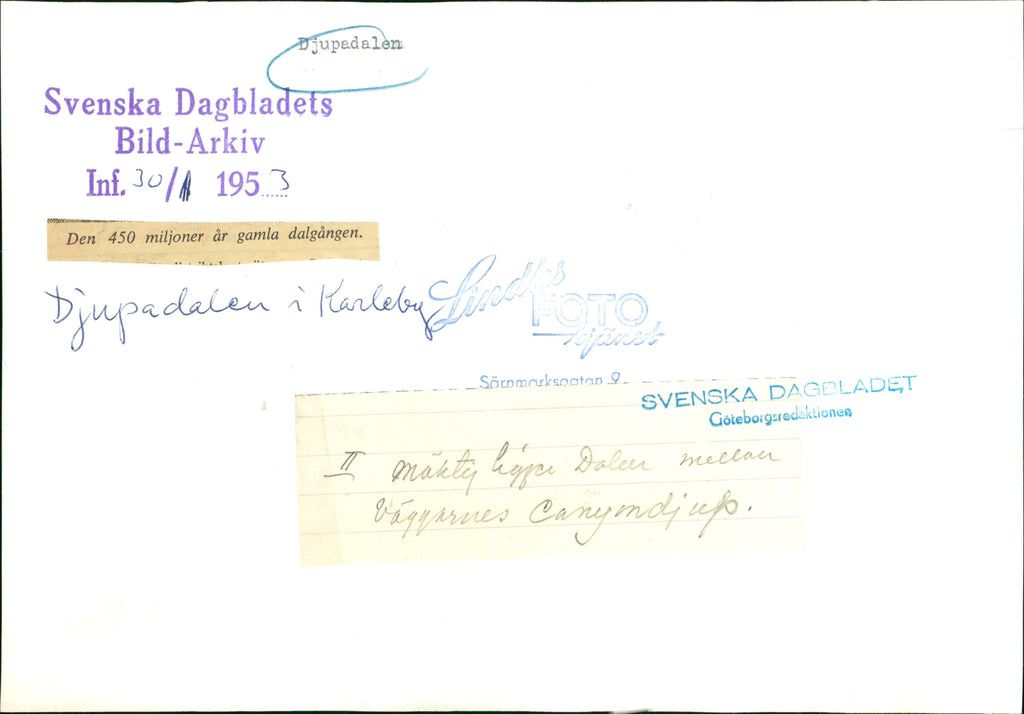 Djupadalen
Svenska Dagbladets
Bild-Arkiv
Inf. 30/ 1953
Den 450 miljoner år gamla dalgången.
Djupadalen i Karleby
Lindhs
FOTO
tjänst
Särnmarksgatan 9
SVENSKA DAGBLADET
Göteborgsredaktionen
II Mäktig ligger Dalen mellan
Väggarnes Canyondjup.